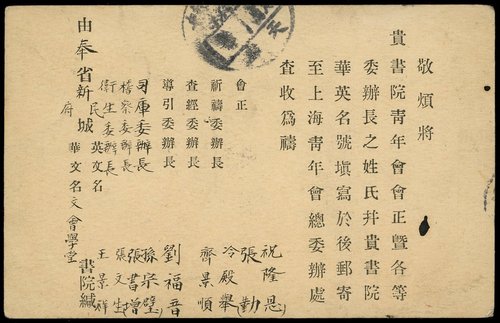 敬煩將
貴書院青年會會正暨各等
委辦長之姓氏幷貴書院
華英名號塡寫於後郵寄
至上海靑年會總委辦處
查收爲禱
會正 祝隆恩
祈禱委辦長 張(勤)
查經委辦長 冷殿舉
導引委辦長 齊景順
司庫委辦長 劉福音
稽察委辦長 孫宗璧
衛生委辦長 張書增
張文生
王景祥
由奉省新民府城 英文名 華文名文會學堂 書院緘